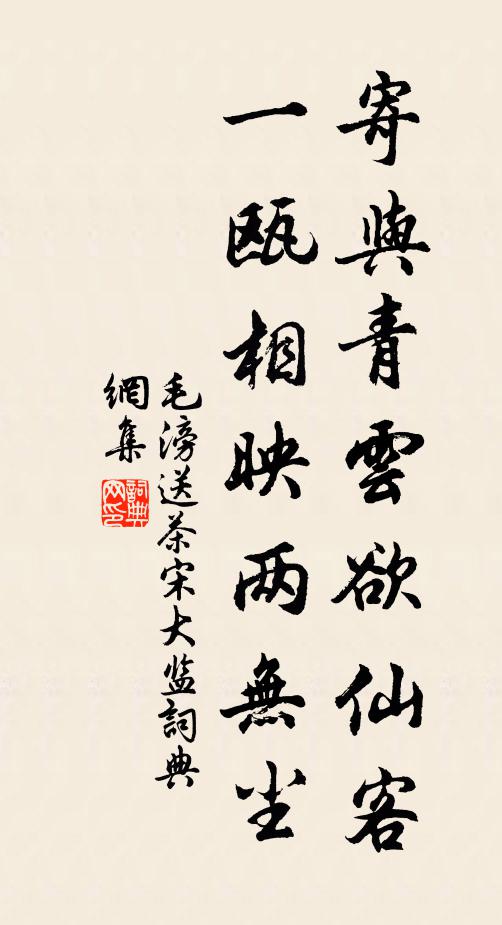 寄與青雲欲仙客
一甌相映两無尘
毛滂送茶宋大监詞典
網集
詞典
网印